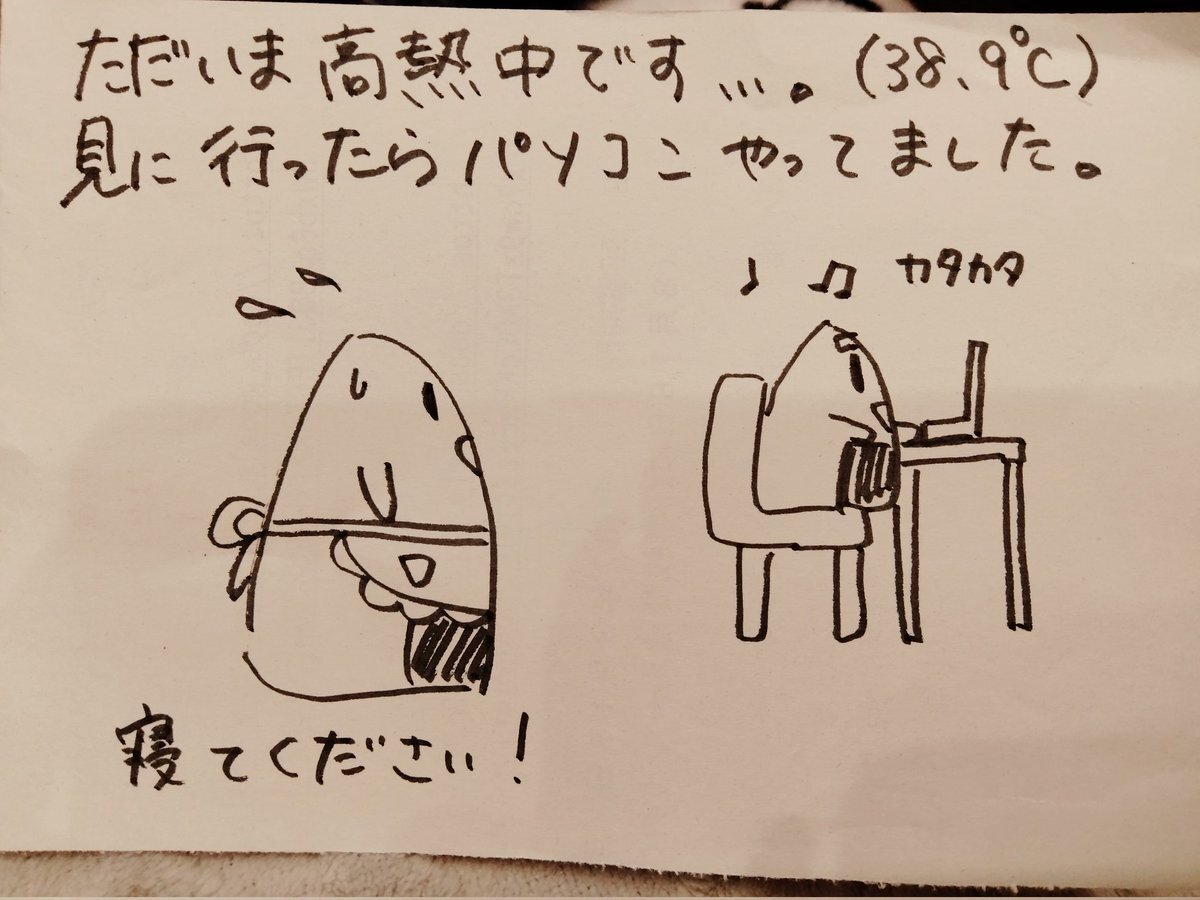 ただいま高熱中です…。(38.9℃)
見に行ったらパソコンやってました。
カタカタ
寝てください!